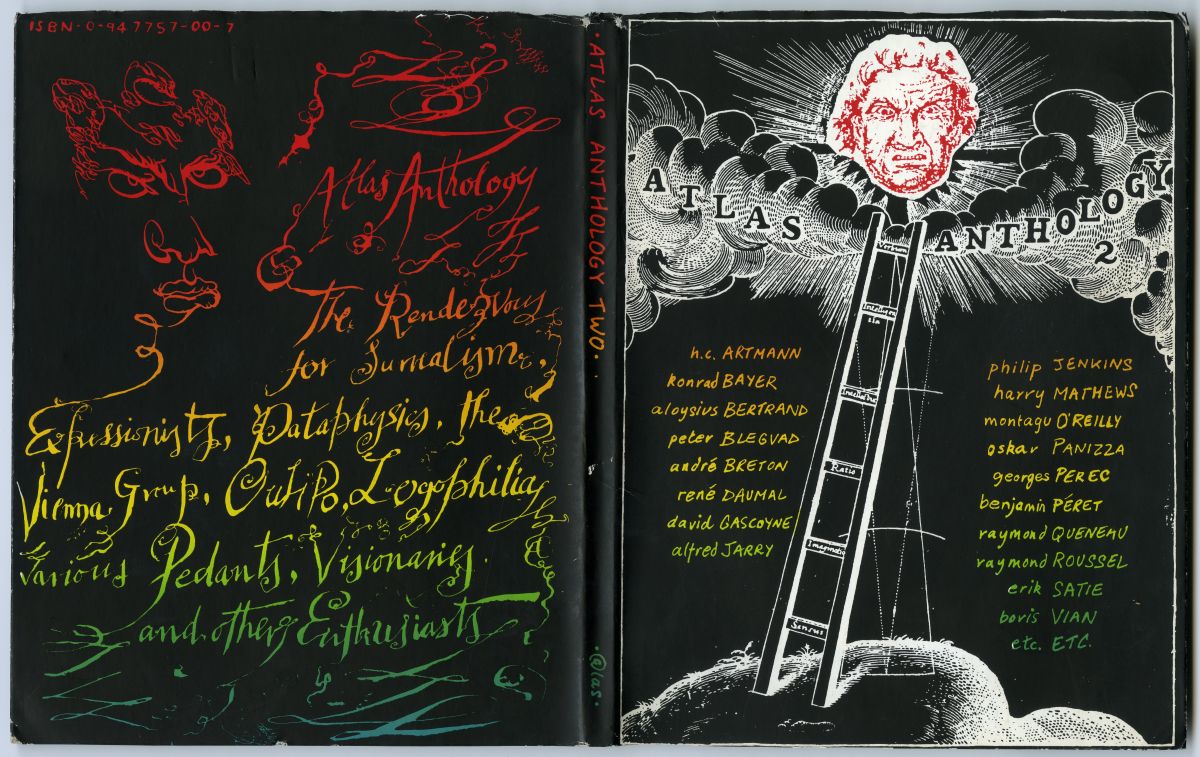 ISBN-0-947757-00-7
Atlas Anthology
The Rendezvous
for Surrealism,
Expressionists, Pataphysics, the
Vienna Group, OuLiPo, Logophilia
various Pedants, Visionaries.
and others Enthusiasts
·ATLAS ANTHOLOGY TWO·
·@las·
ATLAS ANTHOLOGY
2
Verbum
Ratio
Imaginatio
Sensus
h.c. ARTMANN
konrad BAYER
aloysius BERTRAND
peter BLEGVAD
andré BRETON
rené DAUMAL
david GASCOYNE
alfred JARRY
philip JENKINS
harry MATHEWS
montagu O'REILLY
oskar PANIZZA
georges PEREC
benjamin PÉRET
raymond QUENEAU
raymond ROUSSEL
erik SATIE
boris VIAN
etc. ETC.